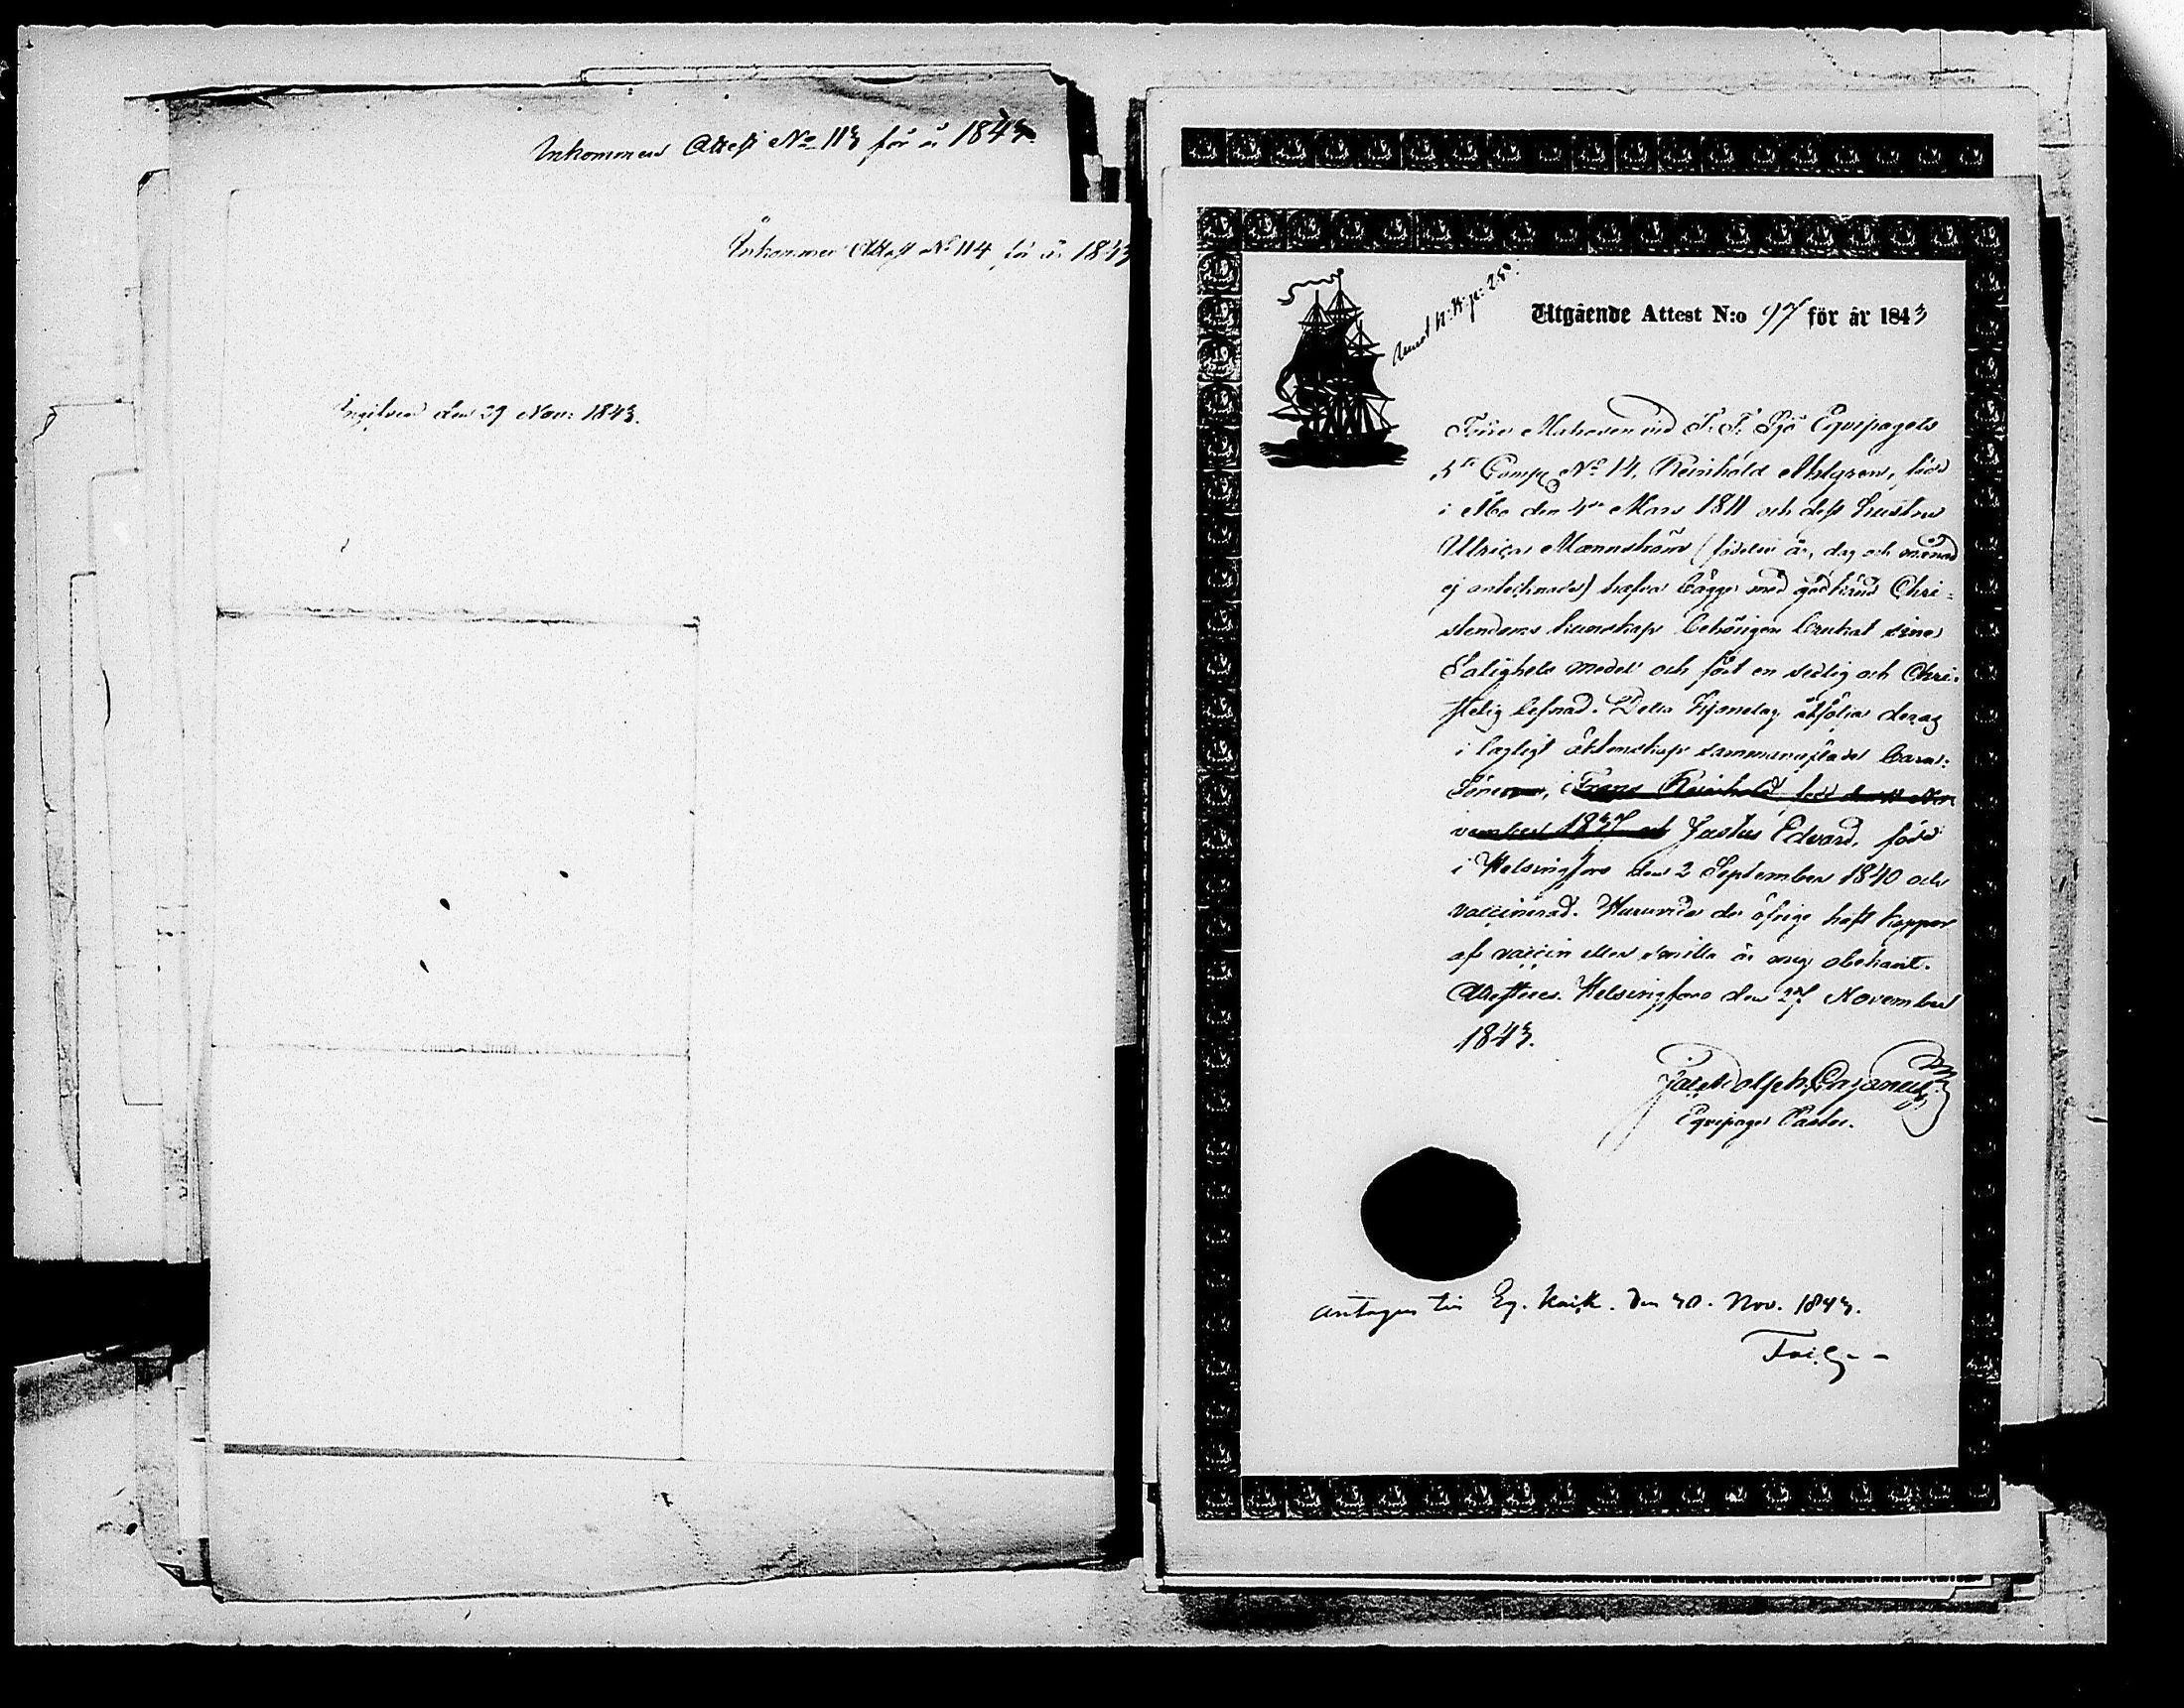 Inkommen Attest No 113 för år 1843.
Inkommen Attest No 114 för år 1843
Ingifven den 29 Nov: 1843.
Utgående Attest N:o 97 för år 1843
Förre Matrosen vid F. F. Sjö Equipagets
Comp No 14, Reinhold Ahlgren, född
i Åbo den 4de Mars 1811 och dess hustru
Ullrica Mannström (födelse år, dag och månad
ej antecknade) hafva bägge med godkänd Chri-
stendoms kunskap behörigen brukat sina
Salighets medel och fört en sedlig och Chri-
stelig lefnad. Detta Hjonelag åtföljes deras
i lagligt äktenskap sammanaflade barn:
Sonen, Frans Reinhold, född den No-
vember 1837 och Justus Edvard, född
i Helsingfors den 2 September 1840 och
vaccinerad. Huruvida de öfrige haft koppor
af vaccin eller smitta är mig obekant.
Attesteres. Helsingfors den 27 November
1843.
Equipages Pastor.
Antagen till Eq. den 30. Nov. 1843.